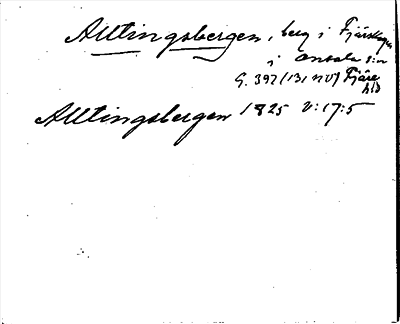 Alltingsbergen, berg i Fjärskogen
i Onsala s:n
G. 392/131 NV) Fjäre
hd
Alltingsbergen 1825 V:17:5